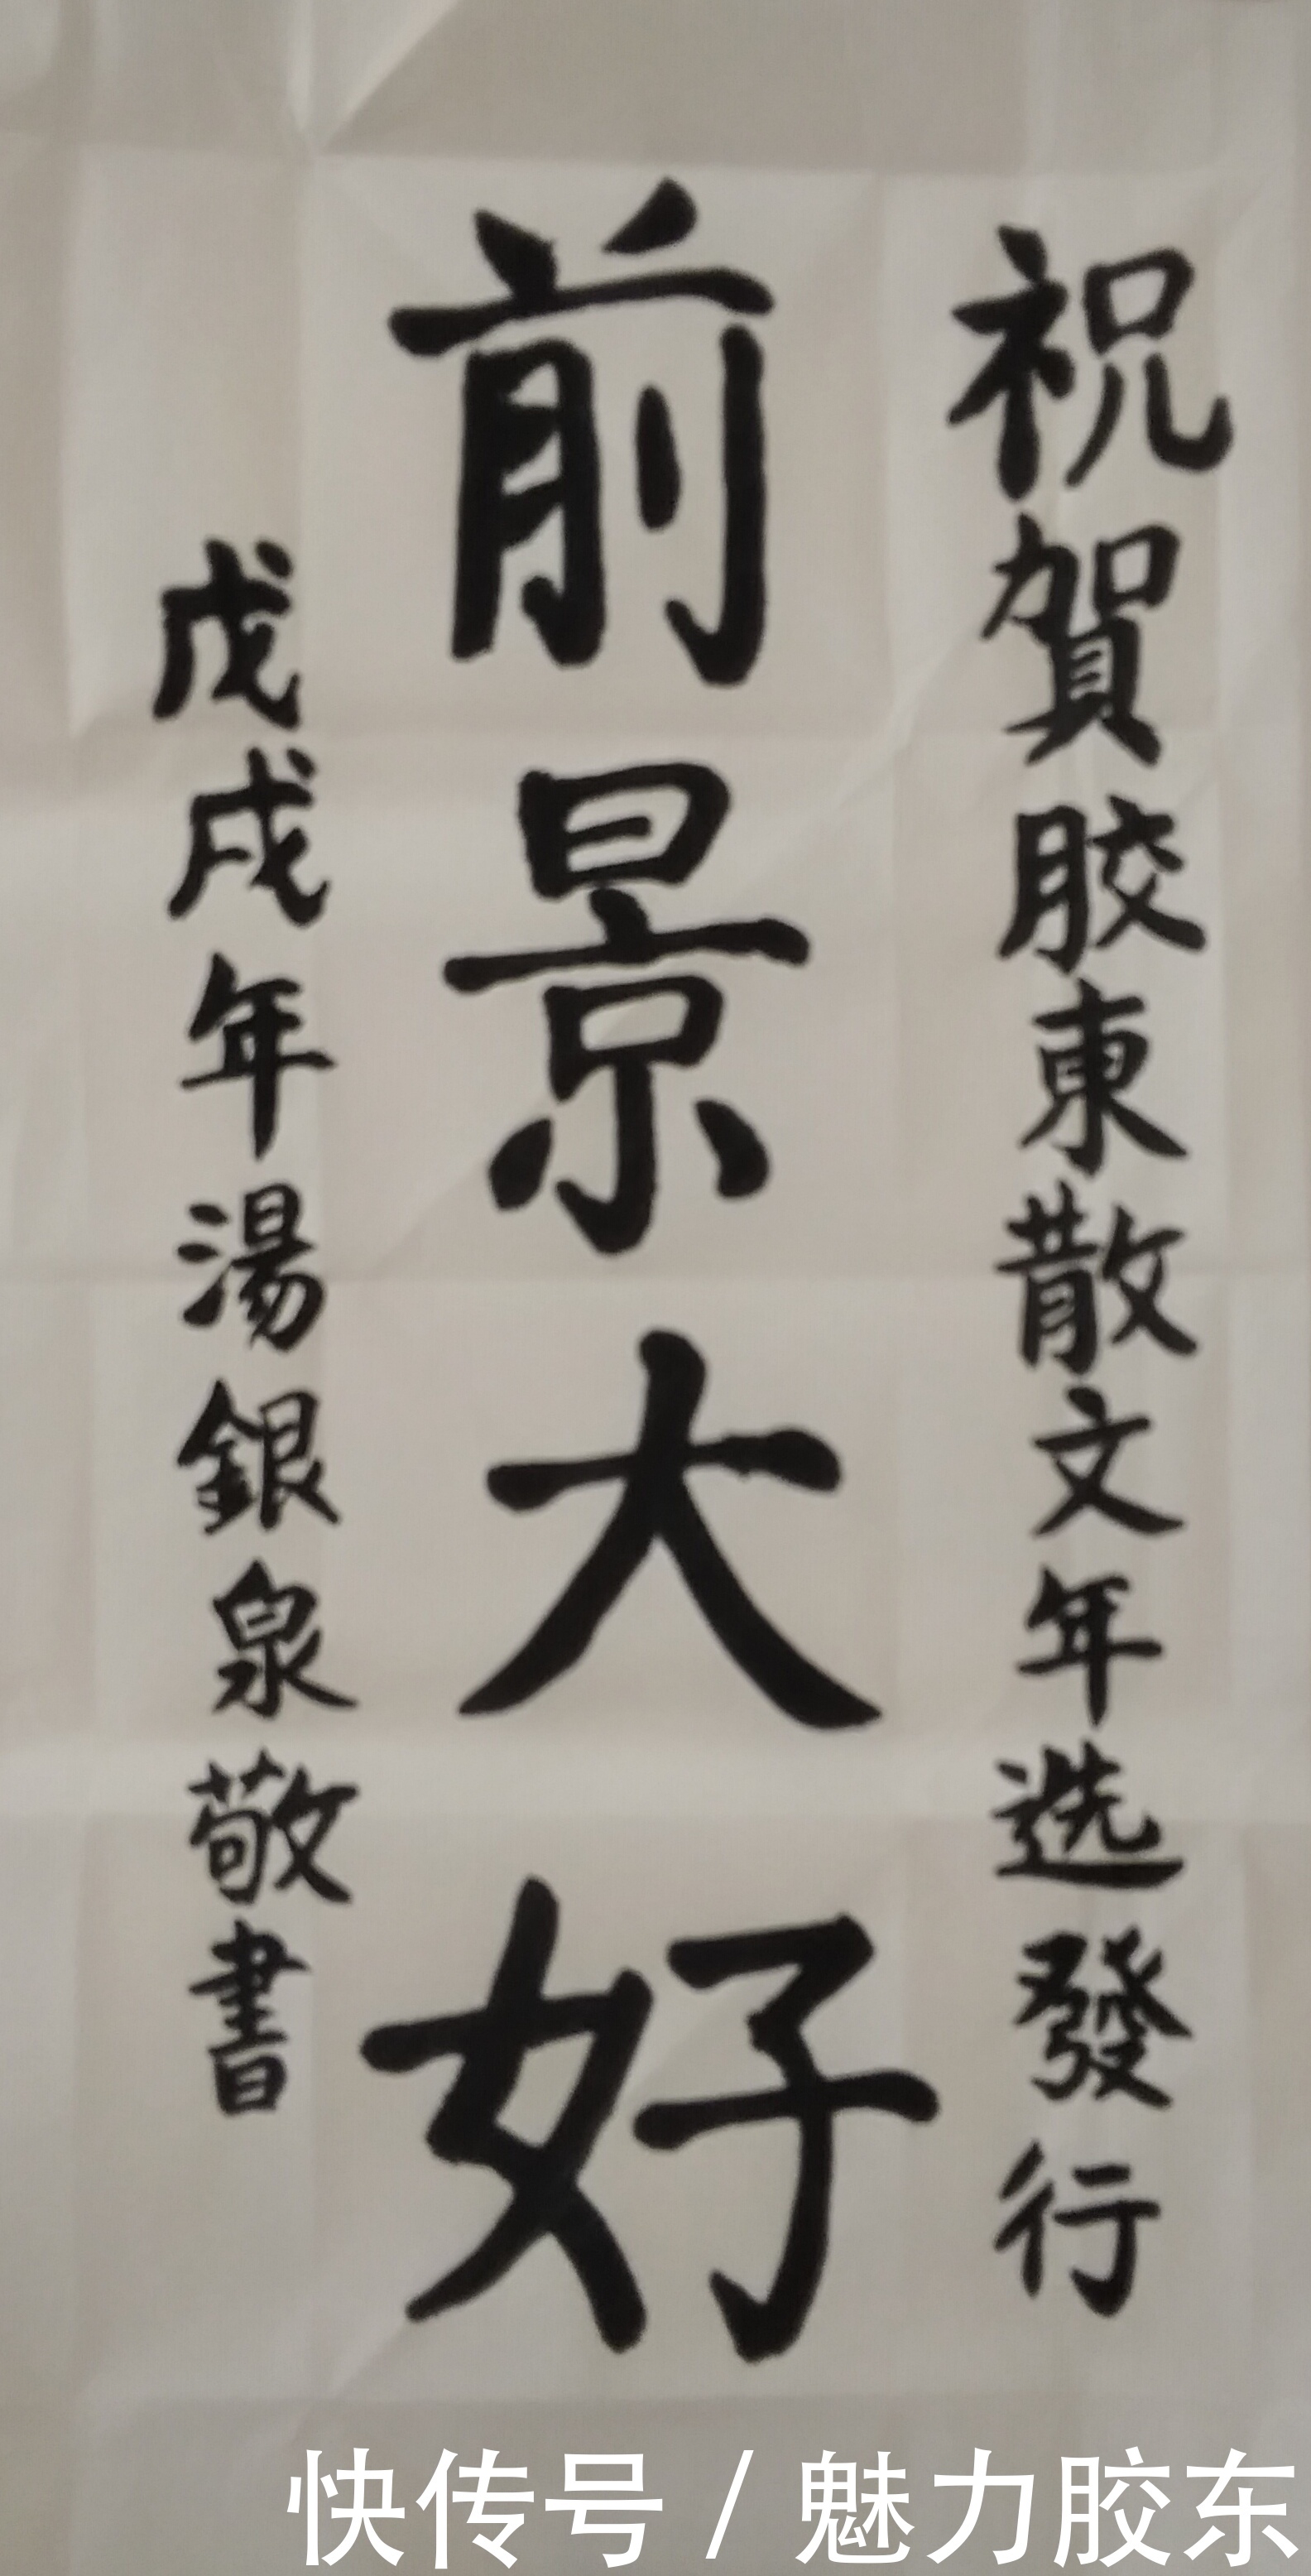 祝賀胶東散文年选發行
前景大好
戊戌年湯銀泉敬書
快传号/魅力胶东